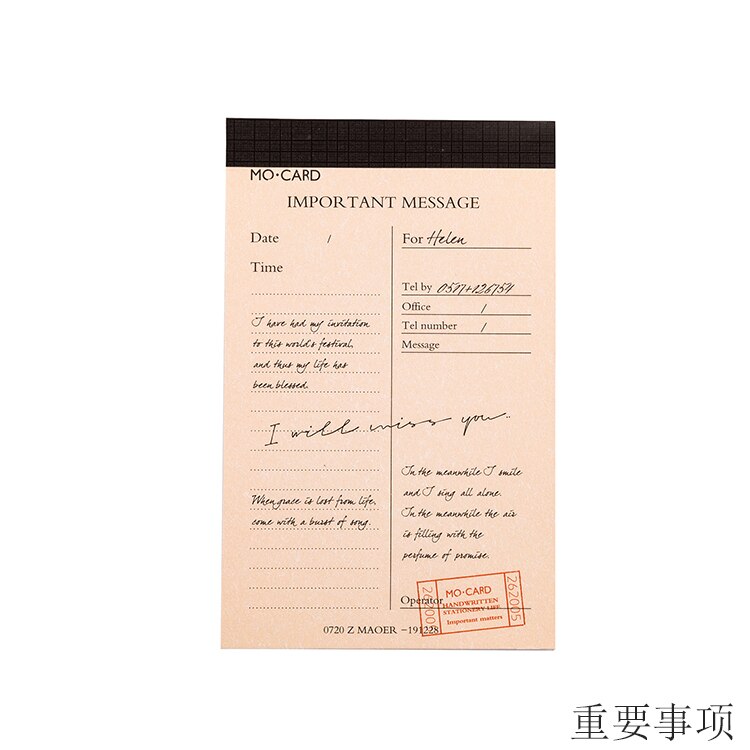 MO·CARD
IMPORTANT MESSAGE
Date /
Time
I have had my invitation
to this world's festival,
and thus my life has
been blessed.
For Helen
Tel by 0517+126754
Office /
Tel number /
Message
I will miss you..
When grace is lost from life,
come with a burst of song.
In the meanwhile I smile
and I sing all alone.
In the meanwhile the air
is filling with the
perfume of promise.
Operator
MO·CARD
HANDWRITTEN
STATIONERY LIFE
Important matters
262005
0720 Z MAOER -191228
重要事项